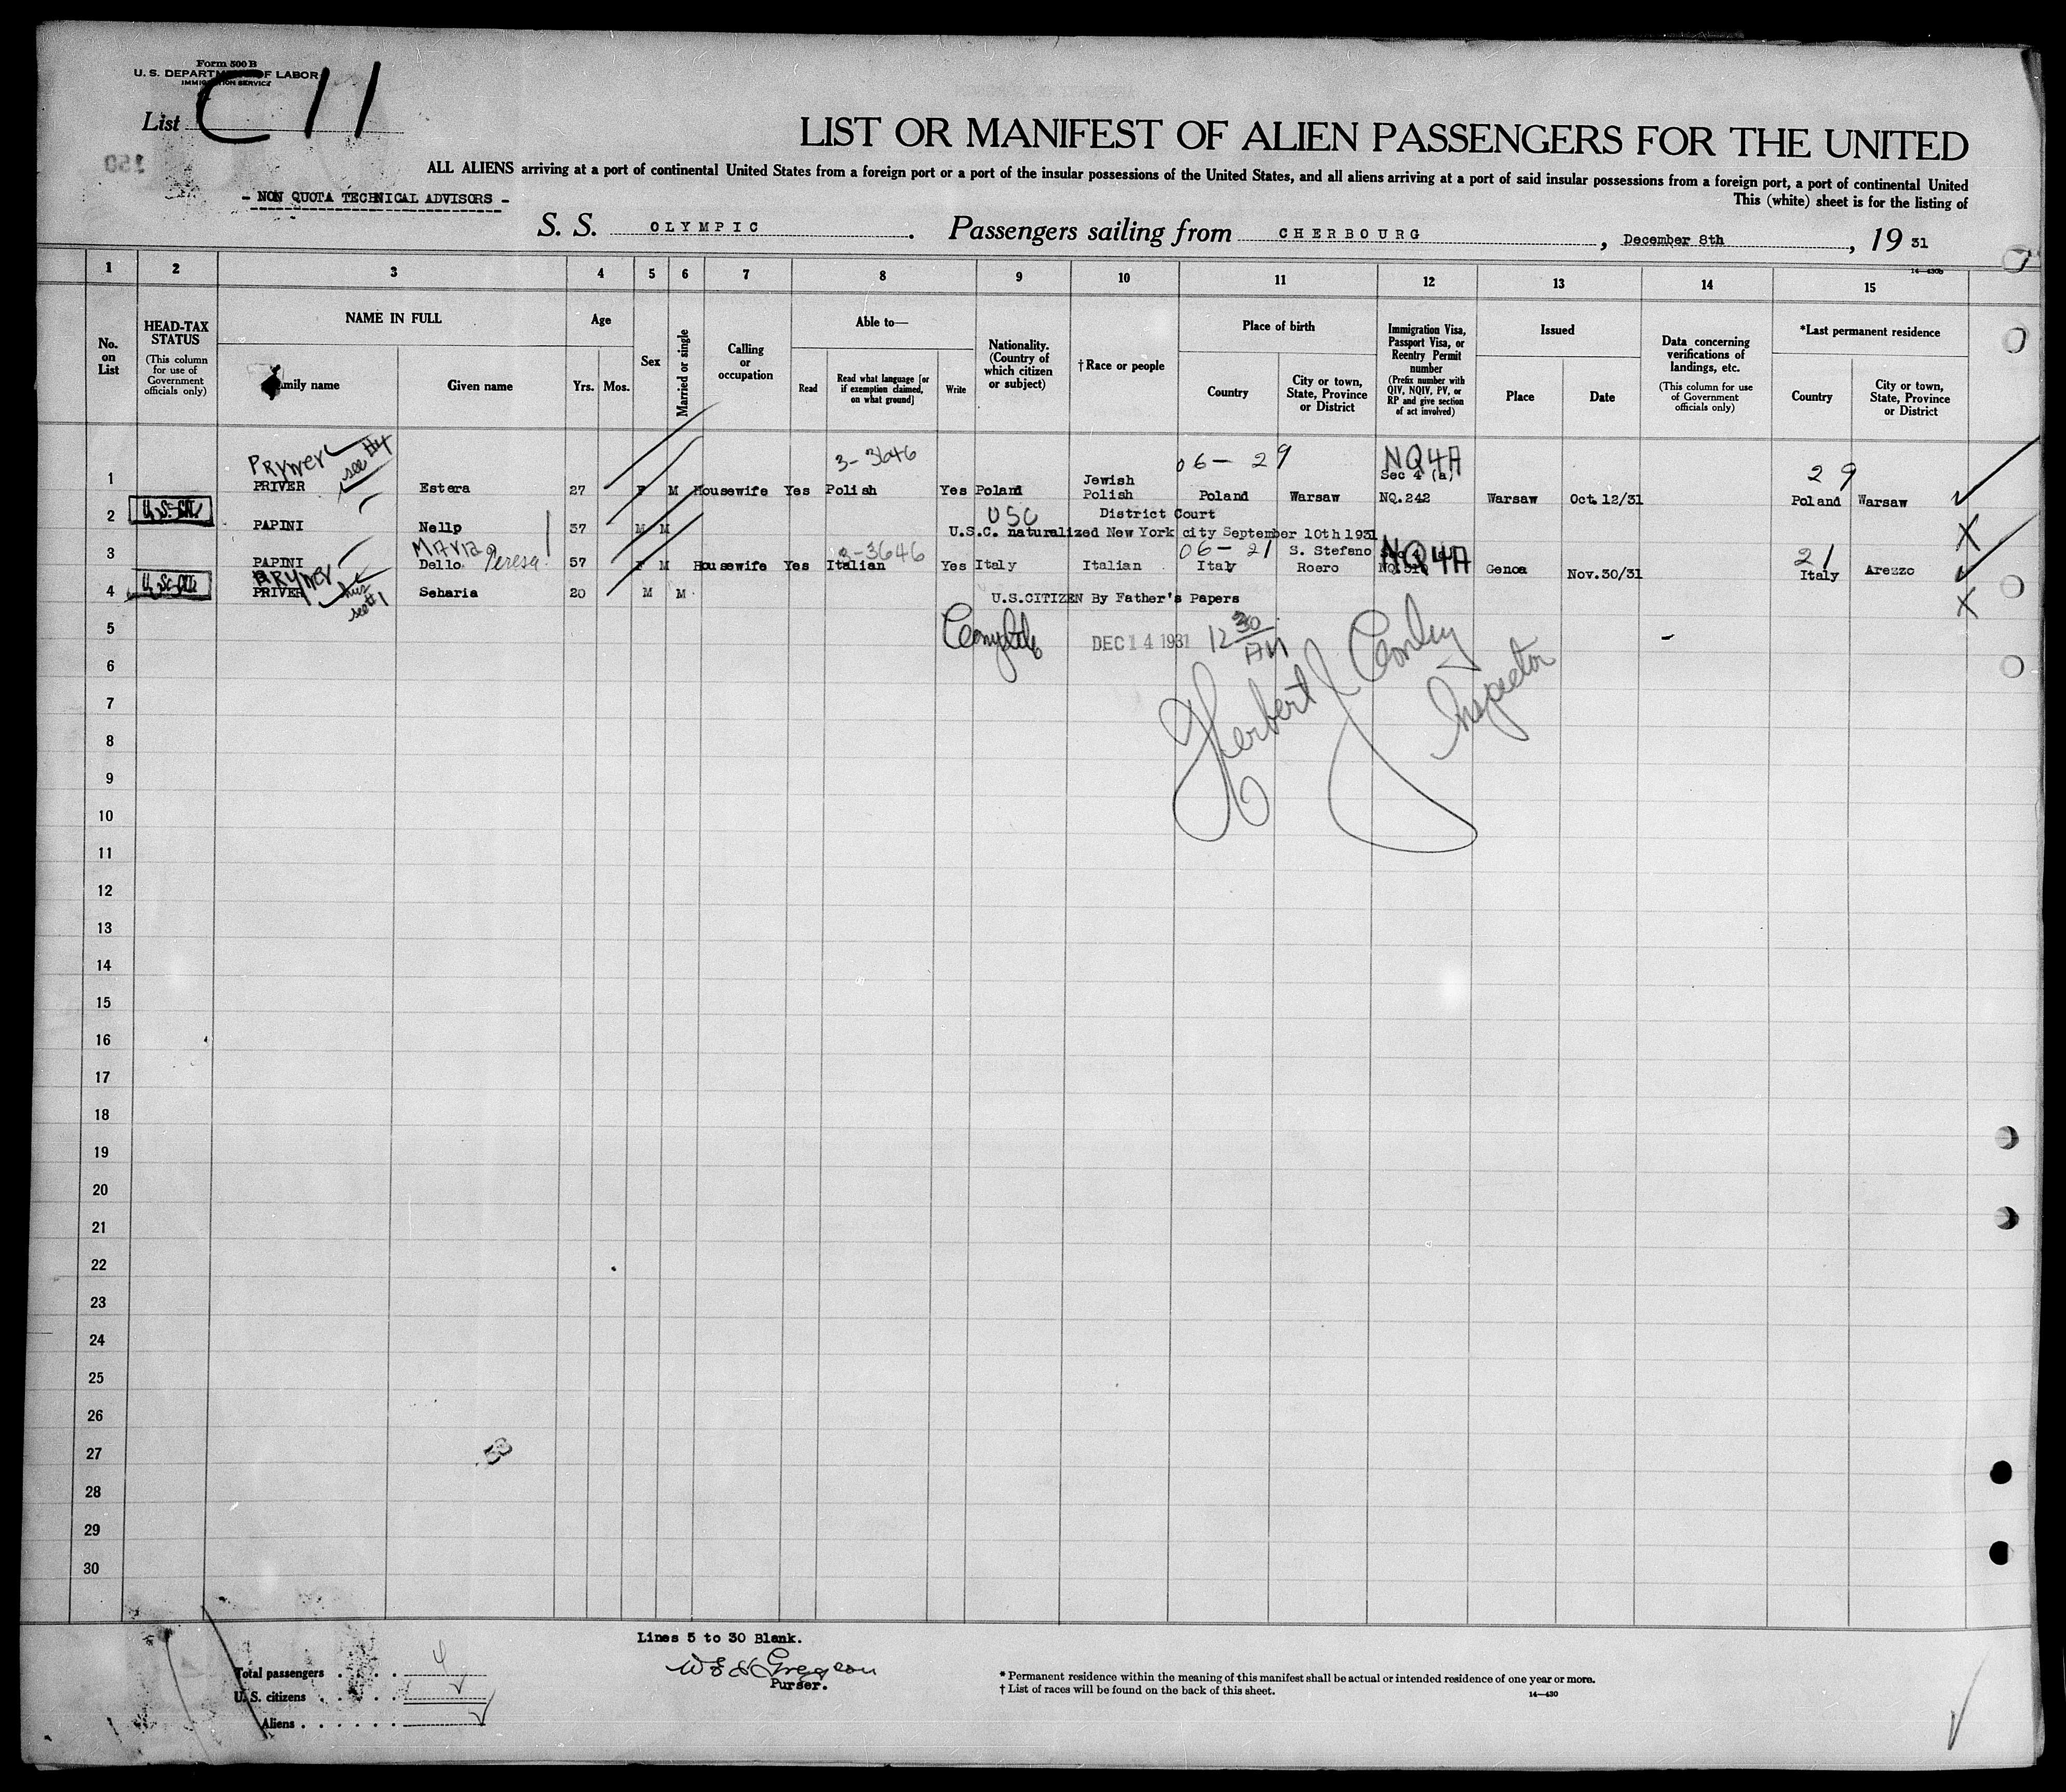 Form 500 B
U. S. DEPARTMENT OF LABOR
IMMIGRATION SERVICE
List C 11
150
LIST OR MANIFEST OF ALIEN PASSENGERS FOR THE UNITED
ALL ALIENS arriving at a port of continental United States from a foreign port or a port of the insular possessions of the United States, and all aliens arriving at a port of said insular possessions from a foreign port, a port of continental United
- NON QUOTA TECHNICAL ADVISORS -
This (white) sheet is for the listing of
S. S. OLYMPIC. Passengers sailing from CHERBOURG, December 8th, 19 31
14—430b
1 2 3 4 5 6 7 8 9 10 11 12 13 14 15
No. on List
HEAD-TAX STATUS
(This column for use of Government officials only)
NAME IN FULL
Family name
Given name
Age
Yrs. Mos.
Sex
Married or single
Calling or occupation
Able to—
Read
Read what language [or if exemption claimed, on what ground]
Write
Nationality. (Country of which citizen or subject)
†Race or people
Place of birth
Country
City or town, State, Province or District
Immigration Visa, Passport Visa, or Reentry Permit number
(Prefix number with QIV, NQIV, PV, or RP and give section of act involved)
Issued
Place
Date
Data concerning verifications of landings, etc.
(This column for use of Government officials only)
*Last permanent residence
Country
City or town, State, Province or District
PRYWER see #4 3-3646 06-29 NQ4A 29
Jewish Sec 4 (a)
1 PRIVER Estera 27 F M Housewife Yes Polish Yes Poland Polish Poland Warsaw NQ.242 Warsaw Oct.12/31 Poland Warsaw
USC District Court
2 PAPINI Nellp 37 M M U.S.C. naturalized New York city September 10th 1931 X
Maria Teresa 3-3646 06-21 S. Stefano NQ4A 21
3 PAPINI Dello 57 F M Housewife Yes Italian Yes Italy Italian Italy Roero Genoa Nov.30/31 Italy Arezzo
PRYWER see #1
4 PRIVER Seharia 20 M M U.S.CITIZEN By Father's Papers X
5
DEC 14 1931 12 30 AM
Herbert J Conley
Inspector
6
7
8
9
10
11
12
13
14
15
16
17
18
19
20
21
22
23
24
25
26
27
28
29
30
Lines 5 to 30 Blank.
Purser.
Total passengers . . . . 4
U. S. citizens . . . . . .
Aliens . . . . . .
* Permanent residence within the meaning of this manifest shall be actual or intended residence of one year or more.
† List of races will be found on the back of this sheet.
14—430